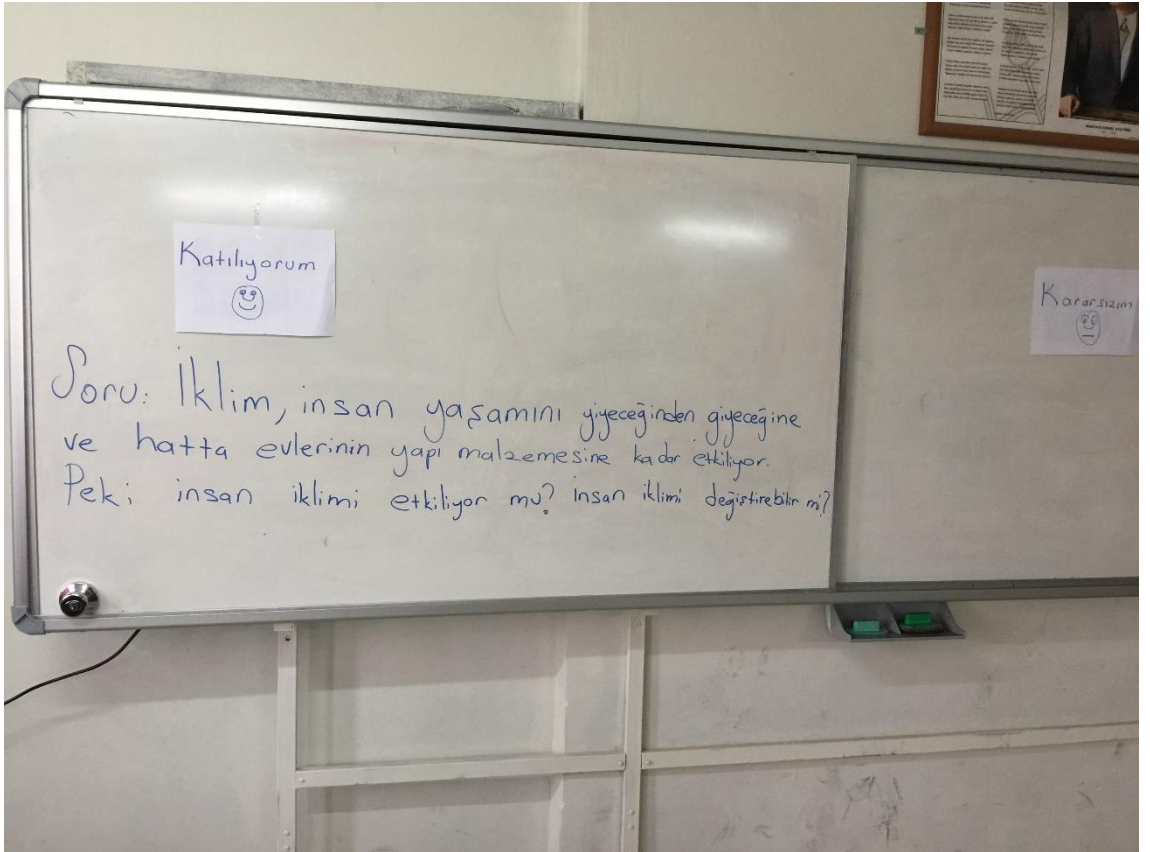 Katılıyorum
Kararsızım
Soru: İklim, insan yaşamını yiyeceğinden giyeceğine
ve hatta evlerinin yapı malzemesine kadar etkiliyor.
Peki insan iklimi etkiliyor mu? İnsan iklimi değiştirebilir mi?